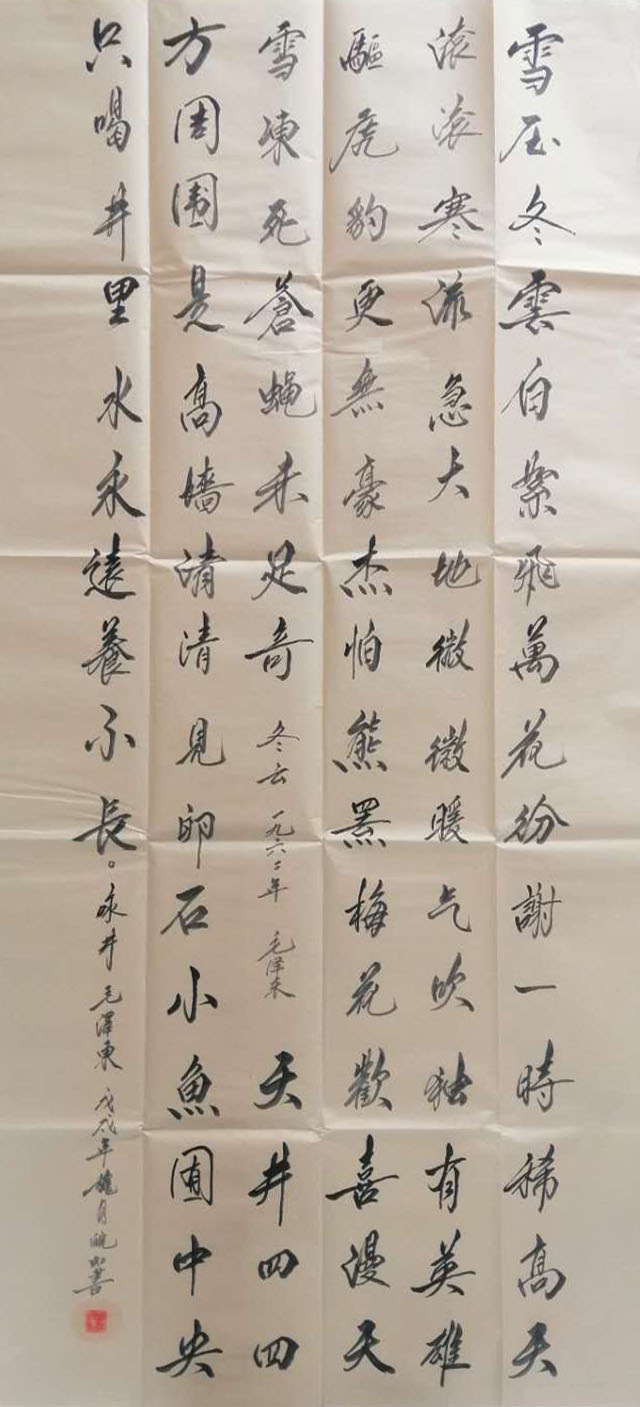 雪压冬雲白絮飛萬花纷謝一時稀高天
滚滚寒流急大地微微暖气吹独有英雄
驅虎豹更無豪杰怕熊羆梅花歡喜漫天
雪凍死蒼蝇未足奇 冬云 一九六二年 毛泽东 天井四四
方周围是高墻清清見卵石小魚囿中央
只喝井里水永遠養不長。咏井 毛澤東 戊戌年 月 書